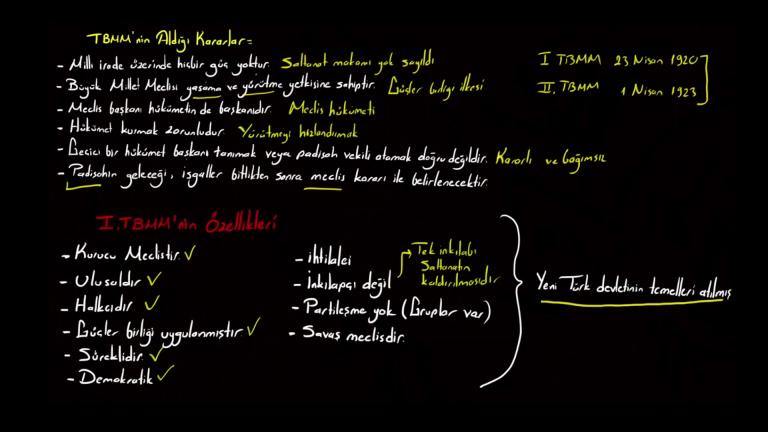 TBMM'nin Aldığı Kararlar=
- Milli irade üzerinde hiçbir güç yoktur. Saltanat makamı yok sayıldı
- Büyük Millet Meclisi yasama ve yürütme yetkisine sahiptir. Güçler birliği ilkesi
- Meclis başkanı hükümetin de başkanıdır. Meclis hükümeti
- Hükümet kurmak zorunludur. Yürütmeyi hızlandırmak
- Geçici bir hükümet başkanı tanımak veya padişah vekili atamak doğru değildir. Kararlı ve bağımsız
- Padişahın geleceği, işgaller bittikten sonra meclis kararı ile belirlenecektir.
I TBMM 23 Nisan 1920
II. TBMM 1 Nisan 1923
I. TBMM'nin Özellikleri
- Kurucu Meclistir. ✓
- Ulusaldır ✓
- Halkçıdır ✓
- Güçler birliği uygulanmıştır ✓
- Süreklidir. ✓
- Demokratik ✓
- ihtilalci
- İnkılapçı değil → Tek inkılabı
Saltanatın
kaldırılmasıdır
- Partileşme yok (Gruplar var)
- Savaş meclisdir.
Yeni Türk devletinin temelleri atılmış